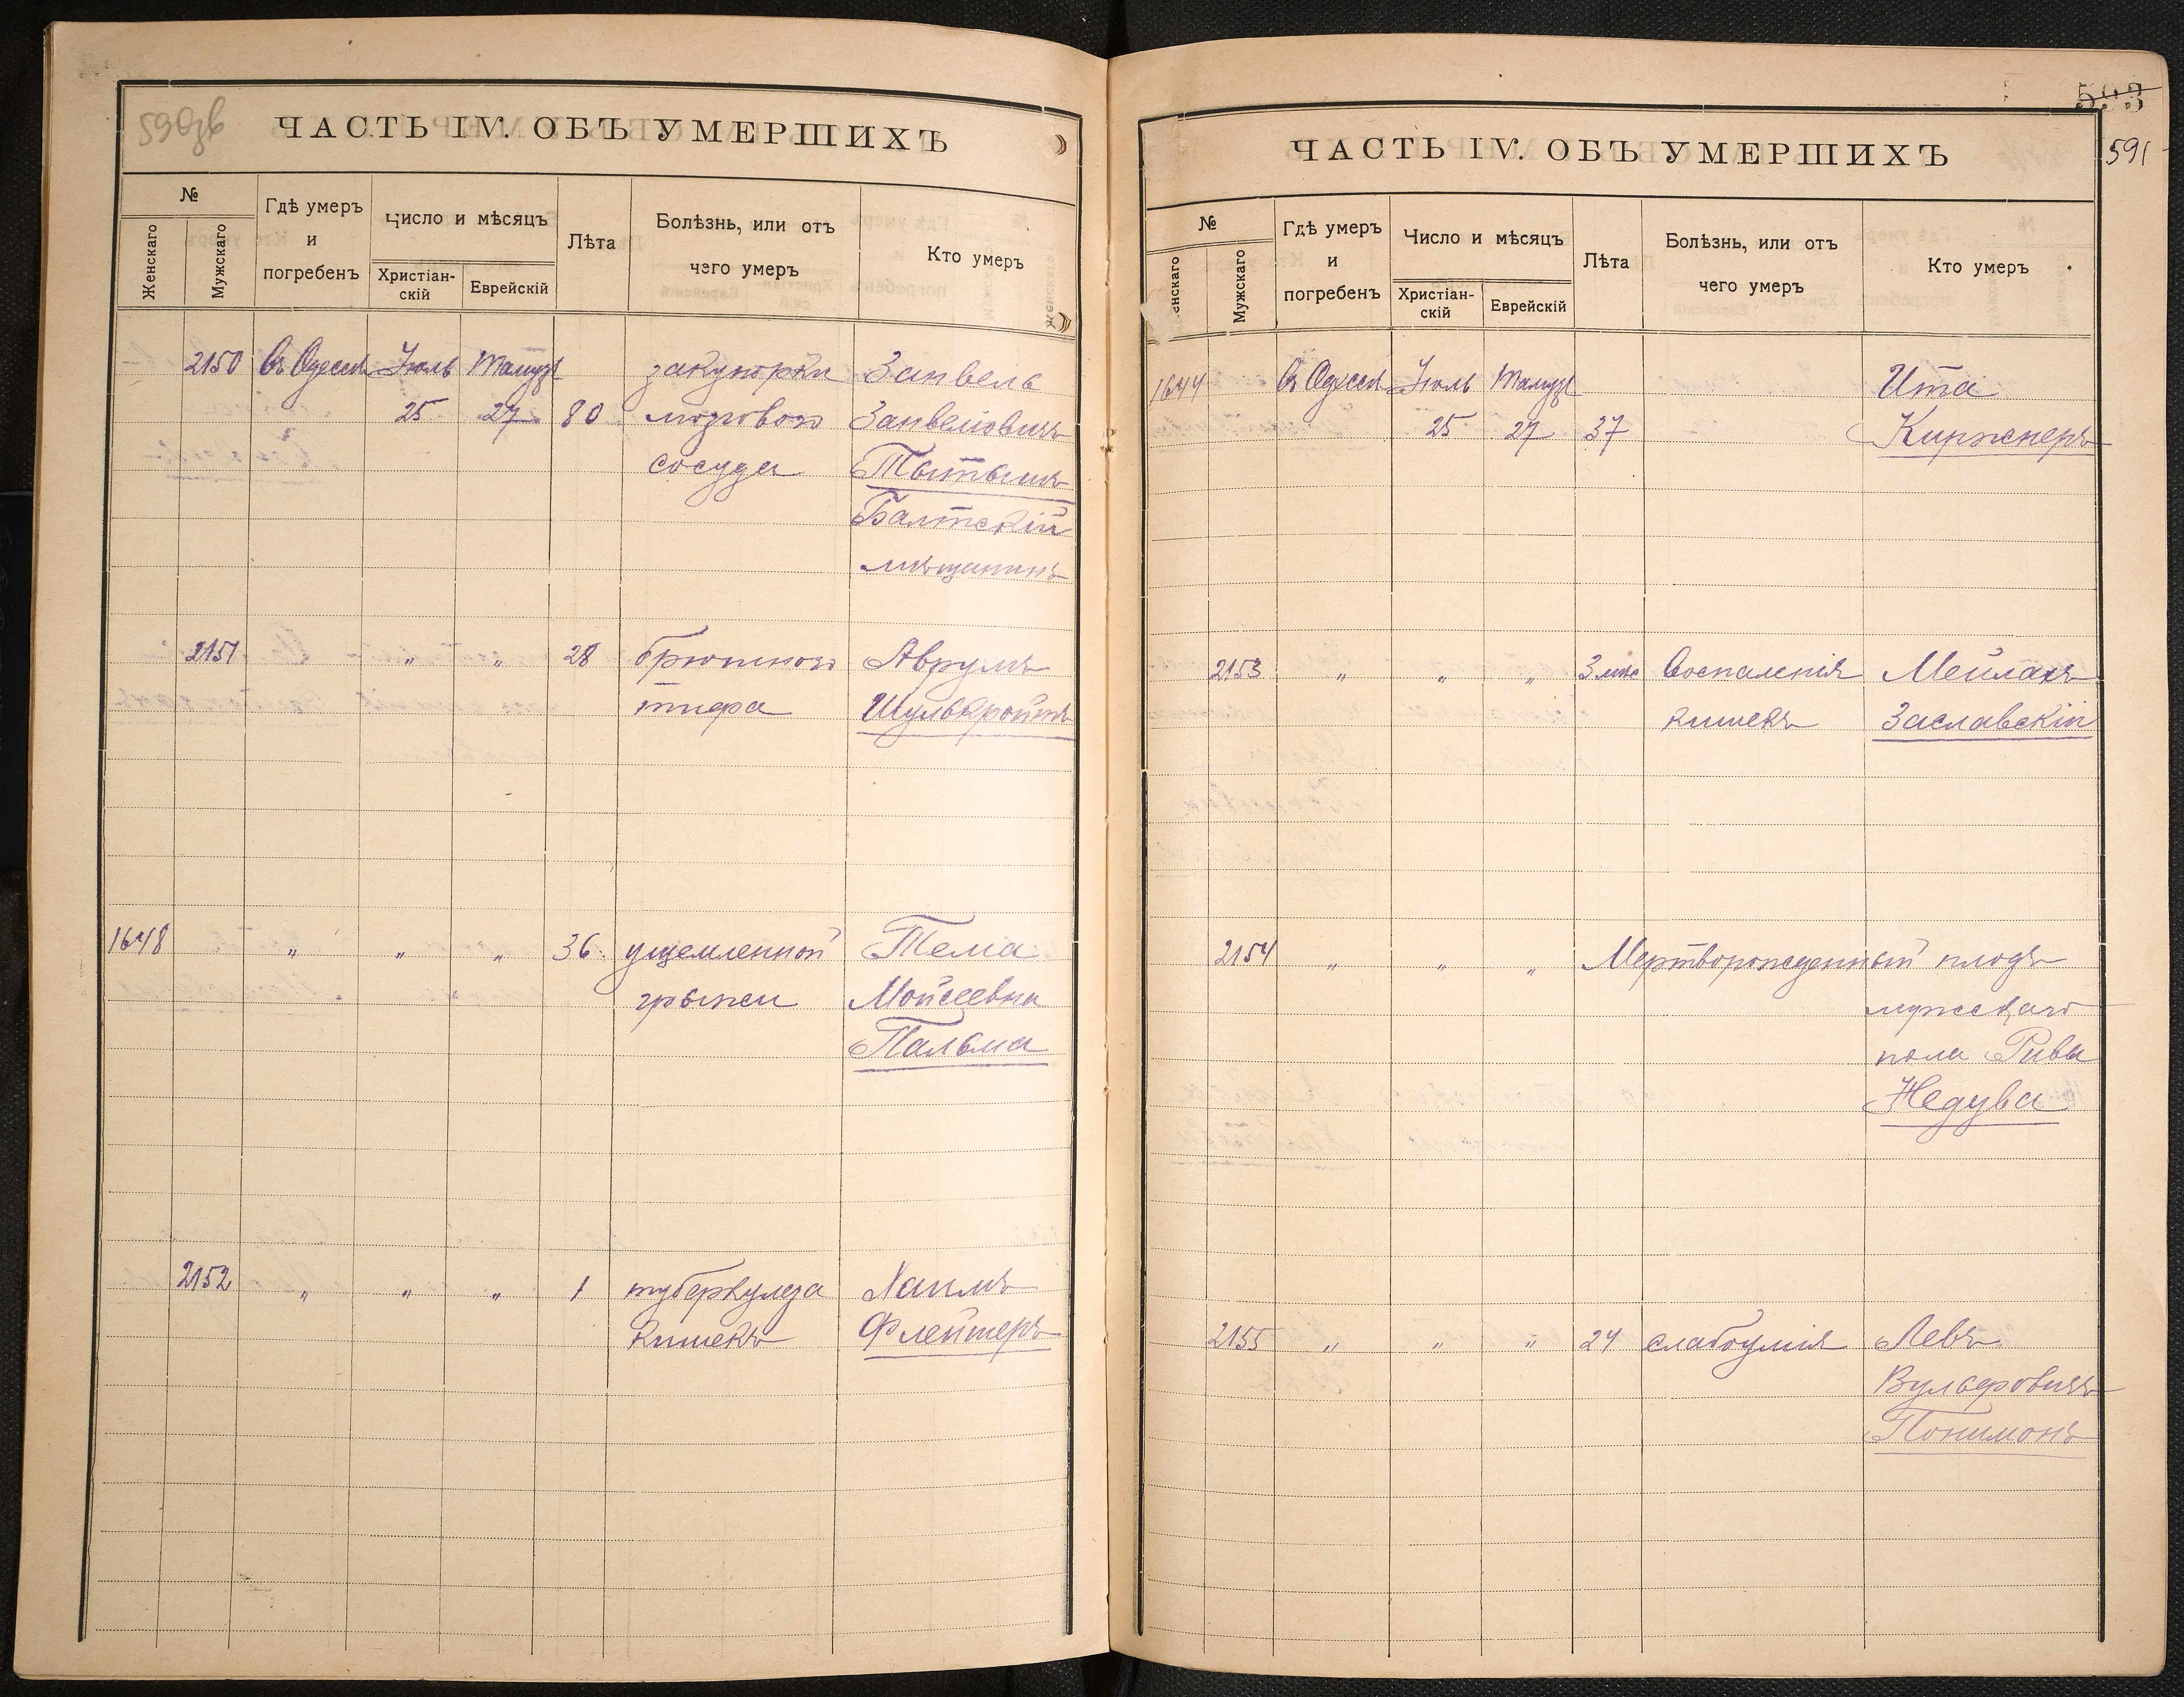 590об
ЧАСТЬ IV. ОБЪ УМЕРШИХЪ
№
Женскаго
Мужскаго
Гдѣ умеръ
и
погребенъ
Число и мѣсяцъ
Христіан-
скій
Еврейскій
Лѣта
Болѣзнь, или отъ
чего умеръ
Кто умеръ
2150 Въ Одессѣ Іюль Тамузъ закупорки Занвель
25 27 80 мозгового Занвеліовичъ
сосуда Тытышъ
Балтскій
мѣщанинъ
2151 " " 28 брюшного Аврумъ
тифа Шулькройтъ
1648 " " " 36 ущемленной Тема
грыжи Мойсеевна
Пальма
2152 " " " 1 туберкулеза Хаимъ
кишекъ Флейтеръ
593
591
ЧАСТЬ IV. ОБЪ УМЕРШИХЪ
№
енскаго
Мужскаго
Гдѣ умеръ
и
погребенъ
Число и мѣсяцъ
Христіан-
скій
Еврейскій
Лѣта
Болѣзнь, или отъ
чего умеръ
Кто умеръ
1644 Въ Одессѣ Іюль Тамузъ Ита
25 27 37 Киржнеръ
2153 " " " 3 мѣс Воспаленія Мейлахъ
кишекъ Заславскій
2154 " " " Мертворожденный плодъ
мужскаго
пола Рива
Недува
2155 " " " 24 слабоумія Левъ
Вульфовичъ
Понимонъ